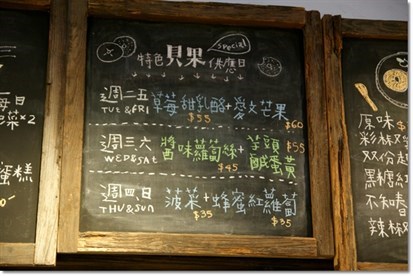 特色貝果供應日 special
週二五 草莓甜乳酪+愛上芒果
TUE&FRI $55 $60
週三六 醬味蘿蔔絲+芋頭鹹蛋黃
WED&SAT $45 $55
週四、日 菠菜+蜂蜜紅蘿蔔
THU&SUN $35 $35
每日
菜×2
蜜糕
原味
彩椒
双份起
黑糖紅
不知春
辣椒